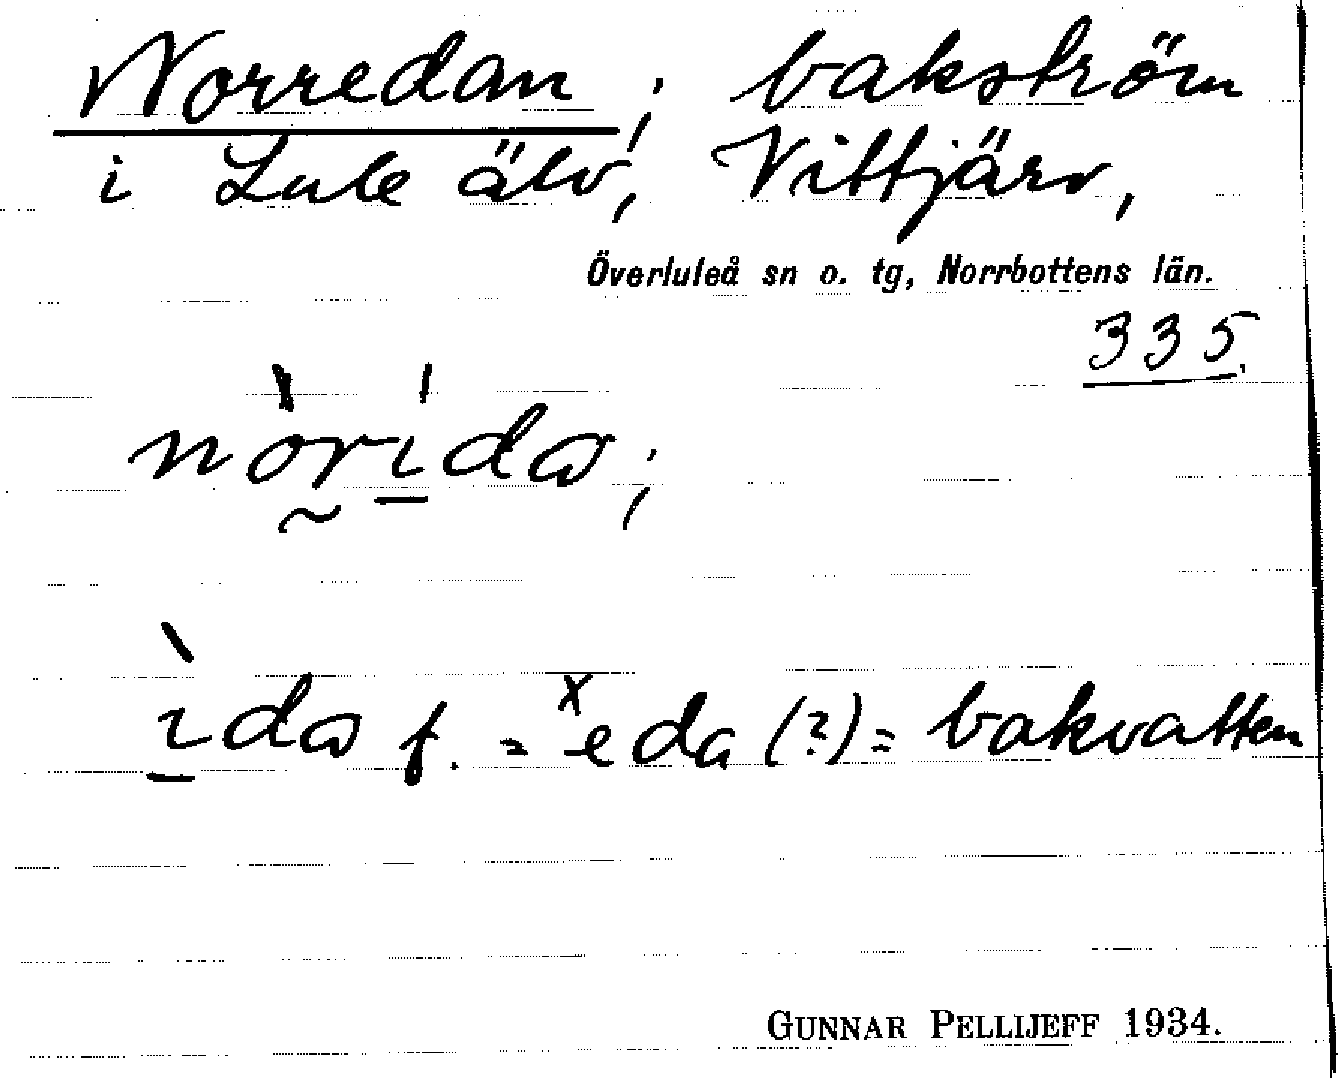 Norredan; bakström
i Lule älv, Vittjärv,
Överluleå sn o. tg, Norrbottens län.
335.
nòrída;
ìda f. = ˣeda (?) = bakvatten
GUNNAR PELLIJEFF 1934.